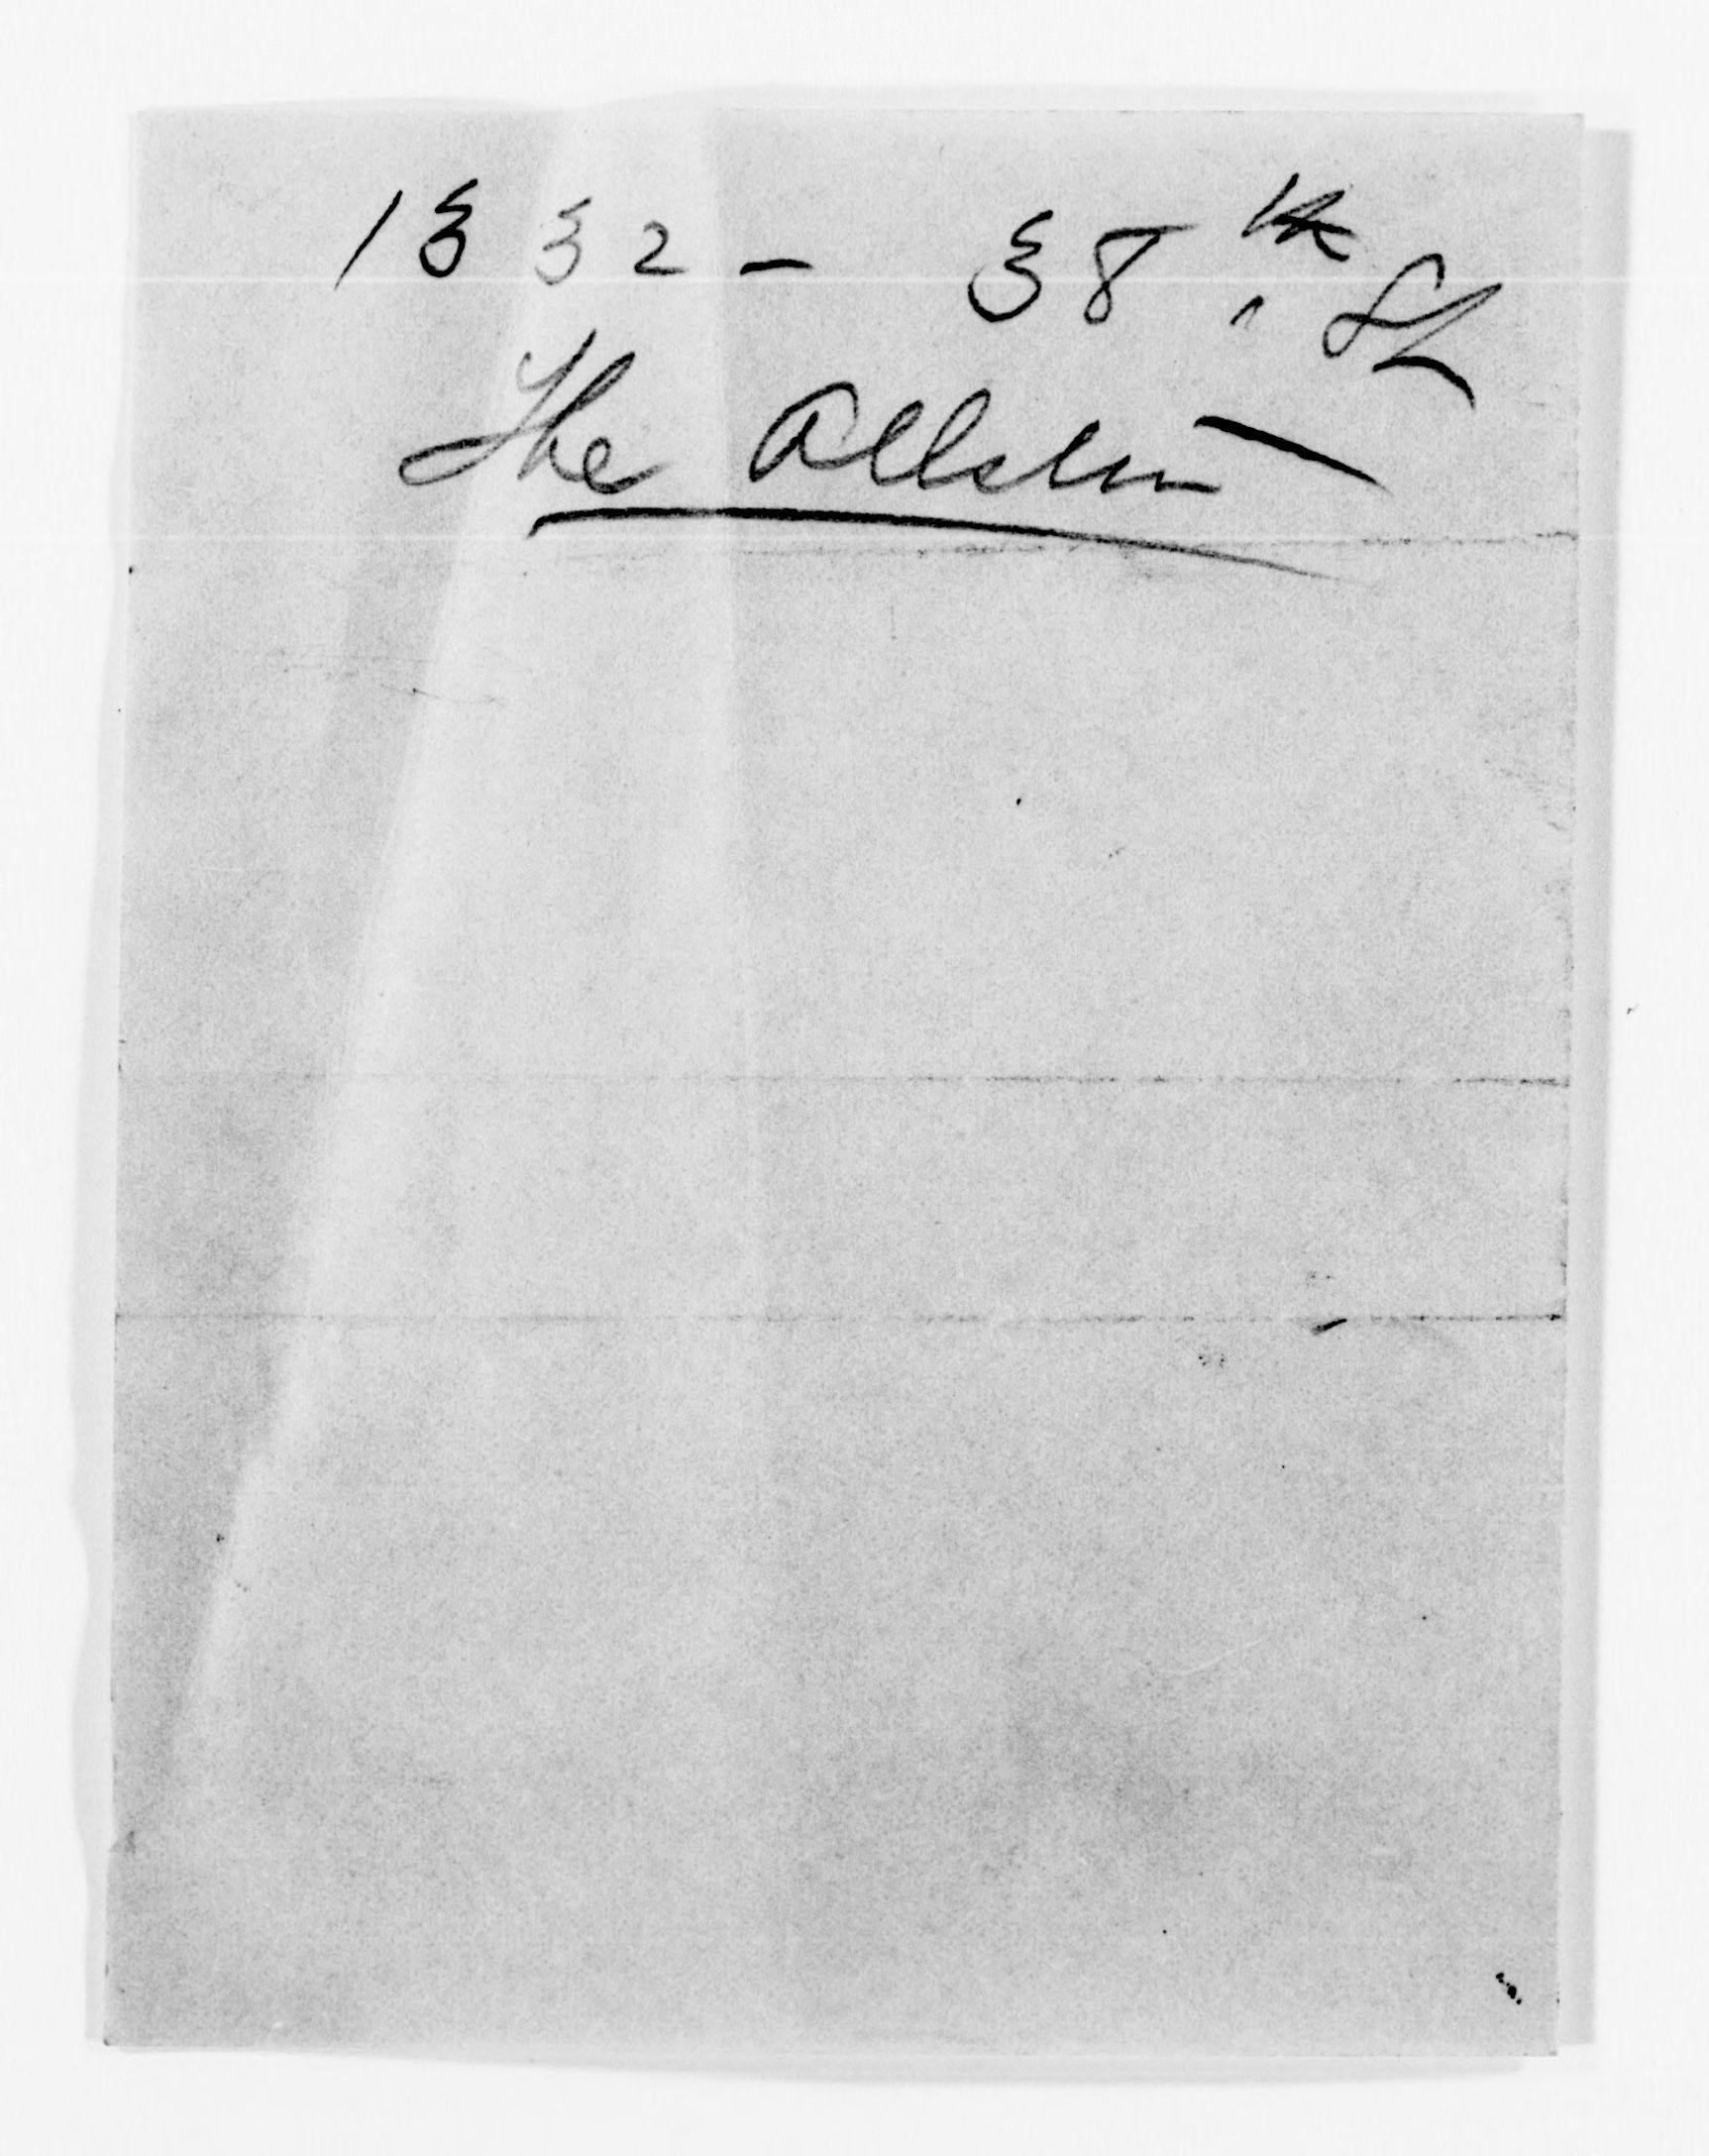 1332 - 38th St
The Allston